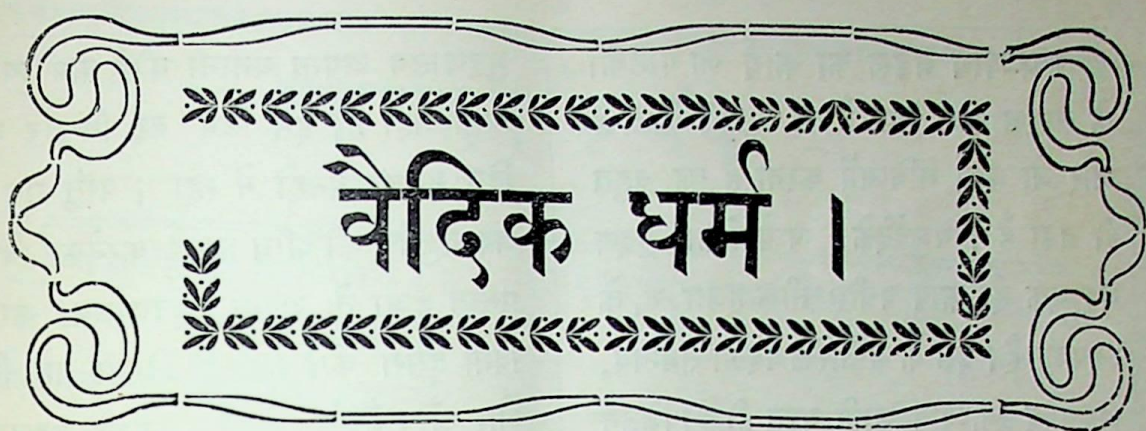 वैदिक धर्म ।